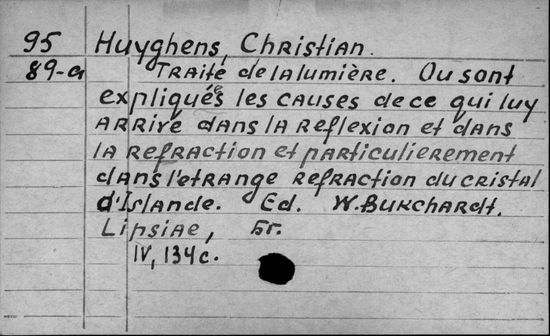 95 Huyghens, Christian.
89-a Traité de la lumière. Ou sont
expliquées les causes de ce qui luy
arrive dans la reflexion et dans
la refraction et particulierement
dans l'etrange refraction du cristal
d'Islande. Ed. W. Burchardt.
Lipsiae, бг.
IV, 134 c.